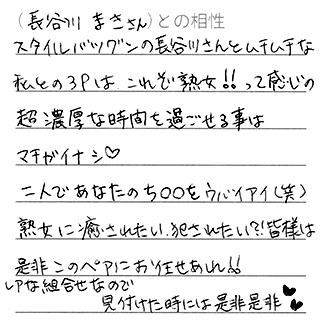 （長谷川 まきさん）との相性
スタイルバツグンの長谷川さんとムチムチな
私との3Pは、これぞ熟女!!って感じの
超濃厚な時間を過ごせる事は
マチガイナシ♡
二人であなたのち〇〇をウバイアイ(笑)
熟女に癒されたい、犯されたい?!皆様は
是非このペアにお任せあれ!!
レアな組合せなので
見付けた時には是非是非♥♥